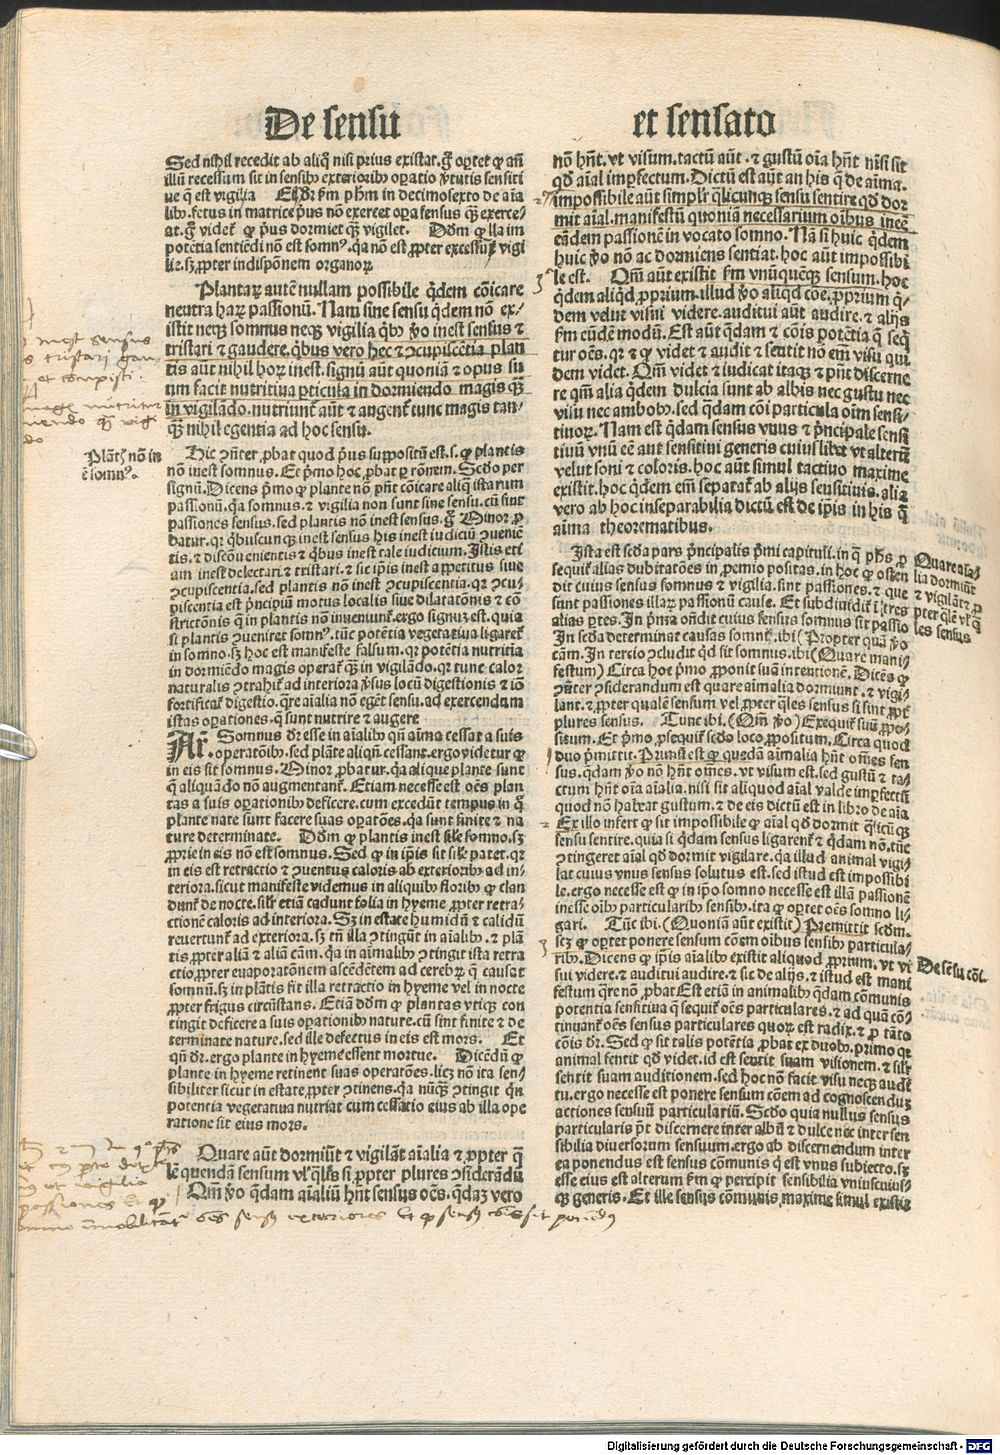 De sensu et sensato
Sed nihil recedit ab aliq̃ nisi prius existat. g̃ oꝑtet ꝙ añ
illũ recessum sit in sensibꝰ exterioribꝰ oꝑatio ṽtutis sensiti
ue q̃ est vigilia
libꝰ. fetus in matrice p̃us nõ exereet oꝑa sensus q̃ꝫ exerce
at. g̃ videt᷑ ꝙ p̃us dormiet q̃ꝫ vigilet. Dõm ꝙ lla im
potẽtia sentiẽdi nõ est somnꝰ. q̃a nõ est ꝓpter excessũ vigi
lie. sꝫ ꝓpter indisponẽm organoꝝ
Plantaꝝ autẽ nullam possibile q̃dem cõicare
neutra haꝝ passionũ. Nam sine sensu q̃dem nõ ex⸗
istit neqꝫ somnus neqꝫ vigilia q̃bꝰ ṽo inest sensus ⁊
tristari ⁊ gaudere. q̃bus vero hec ⁊ ↄcupiscẽtia plan
tis aũt nihil hoꝝ inest. signũ aũt quoniã ⁊ opus su
um facit nutritiua ꝑticula in dormiendo magis q̃ꝫ
in vigilãdo. nutriunt᷑ aũt ⁊ augent᷑ tunc magis tan⸗
q̃ꝫ nihil egentia ad hoc sensu.
Plãtꝭ nõ in
ẽ somnꝰ.
Hic ↄñter ꝓbat quod p̃us suppositũ est. s. ꝙ plantis
nõ inest somnus. Et p̃mo hoc ꝓbat ꝑ rõnem. Scdo per
signũ. Dicens p̃mo ꝙ plante nõ pñt cõicare aliq̃ istarum
passionũ. q̃a somnus ⁊ vigilia non sunt sine sensu. cũ sint
passiones sensus. sed plantis nõ inest sensus. g̃ Minor ꝓ
batur. qꝛ q̃buscunqꝫ inest sensus his inest iudiciũ ↄueniẽ
tis ⁊ discõuenientis ⁊ q̃bus inest tale iudicium. Istis eti
am inest delectari ⁊ tristari. ⁊ sic ip̃is inest appetitus siue
ↄcupiscentia. sed plantis nõ inest ↄcupiscentia. qꝛ ↄcu⸗
piscentia est p̃ncipiũ motus localis siue dilatatõnis ⁊ cõ
strictõnis q̃ in plantis nõ inueniunt᷑. ergo signuꝫ est. quia
si plantis ↄueniret somnꝰ. tũc potẽtia vegetatiua ligaret᷑
in somno. sꝫ hoc est manifeste falsum. qꝛ potẽtia nutritia
in dormiẽdo magis operat᷑ q̃ꝫ in vigilãdo. qꝛ tunc calor
naturalis ↄtrahit᷑ ad interiora ṽsus locũ digestionis ⁊ iõ
fortificat᷑ digestio. q̃re aĩalia nõ egẽt sensu. ad exercendum
istas oꝑationes. q̃ sunt nutrire ⁊ augere
Ar̃. Somnus d̃r esse in aĩalibꝰ qñ aĩma cessat a suis
operatõibꝰ. sed plãte aliqñ cessant. ergo videtur ꝙ
in eis sit somnus. Minor ꝓbatur. q̃a alique plante sunt
q̃ aliquãdo nõ augmentant᷑. Etiam necesse est oẽs plan
tas a suis oꝑationibꝰ deficere. cum excedũt tempus in q̃
plante nate sunt facere suas oꝑatões. q̃a sunt finite ⁊ na
ture determinate. Dõm ꝙ plantis inest sile somno. sꝫ
ꝓprie in eis nõ est somnus. Sed ꝙ in ip̃is sit sile patet. qꝛ
in eis est retractio ⁊ ↄuentus caloris ab exterioribꝰ ad in⸗
teriora. sicut manifeste videmus in aliquibꝰ floribꝰ ꝙ clau
dunt᷑ de nocte. silr̃ etiã cadunt folia in hyeme ꝓpter retra⸗
ctionẽ caloris ad interiora. Sꝫ in estate humidũ ⁊ calidũ
reuertunt᷑ ad exteriora. sꝫ tñ illa ↄtingũt in aĩalibꝰ. ⁊ plã
tis ꝓpter aliã ⁊ aliã cãm. q̃a in aĩmalibꝰ ↄtingit ista retra
ctio ꝓpter euaporatõnem ascẽdẽtem ad cerebꝝ q̃ causat
somnũ. sꝫ in plãtis fit illa retractio in hyeme vel in nocte
ꝓpter frigus circũstans. Etiã dõm ꝙ plantas vtiqꝫ con
tingit deficere a suis oꝑationibꝰ nature. cũ sint finite ⁊ de
terminate nature. sed ille defectus in eis est mors. Et
qñ d̃r. ergo plante in hyeme essent mortue. Dicẽdũ ꝙ
plante in hyeme retinent suas operatões. licꝫ nõ ita sen⸗
sibiliter sicut in estate. ꝓpter ↄtinens. q̃a nũcꝙ̃ ↄtingit q̃n
potencia vegetatiua nutriat cum cessatio eius ab illa ope
ratione sit eius mors.
Quare aũt dormiũt ⁊ vigilãt aĩalia ⁊ ꝓpter q̃
lẽ quendã sensum vl̓ q̃les si ꝓpter plures ↄsiderãdũ
Qm̃ ṽo q̃dam aĩaliũ hñt sensus oẽs. q̃daꝫ vero
nõ hñt. vt visum. tactũ aũt ⁊ gustũ oĩa hñt nisi sit
qd̃ aĩal imꝑfectum. Dictũ est aũt an his q̃ de aĩma.
impossibile aũt simplr̃ q̃licunqꝫ sensu sentire qd̃ dor
mit aĩal. manifestũ quoniã necessarium oĩbus inee᷑
eãdem passionẽ in vocato somno. Nã si huic q̃dem
huic ṽo nõ ac dormiens sentiat. hoc aũt impossibi
le est. Om̃ aũt existit fm̃ vnũquẽqꝫ sensum. hoc
q̃dem aliqd̃ ꝓprium. illud ṽo aliqd̃ cõe. ꝓprium q̃⸗
dem velut visui videre. auditui aũt audire. ⁊ alijs
fm̃ eũdẽ modũ. Est aũt q̃dam ⁊ cõis potẽtia q̃ seq̃
tur oẽs. qꝛ ⁊ ꝙ videt ⁊ audit ⁊ sentit nõ em̃ visu qui
dem videt. Om̃ videt ⁊ iudicat itaqꝫ ⁊ põt discerne
re qm̃ alia q̃dem dulcia sunt ab albis nec gustu nec
visu nec ambobꝰ. sed q̃dam cõi particula oĩm sensi⸗
tiuoꝝ. Nam est q̃dam sensus vnus ⁊ p̃ncipale sensi
tiuũ vnũ eẽ aũt sensitiui generis cuiuslibet vt alterũ
velut soni ⁊ coloris. hoc aũt simul tactiuo maxime
existit. hoc q̃dem em̃ separat᷑ ab alijs sensitiuis. alia
vero ab hoc inseparabilia dictũ est de ip̃is in his q̃
aĩma theorematibus.
Ista est scda pars p̃ncipalis p̃mi capituli. in q̃ phs̃ ꝓ
sequit᷑ alias dubitatões in ꝓemio positas. in hoc ꝙ osten
dit cuius sensus somnus ⁊ vigilia. sint passiones. ⁊ que
sunt passiones illaꝝ passionũ cause. Et subdiuidit᷑ ĩ tres
alias ꝑtes. In p̃ma oñdit cuius sensus somnus sit passio
In scda determinat causas somni. ibi (Propter quã ṽo
cãm. In tercio ↄcludit qd̃ sit somnus. ibi (Quare mani⸗
festum) Circa hoc p̃mo ꝓponit suã intentionẽ. Dicẽs ꝙ
ↄñter ↄsiderandum est quare aĩmalia dormiunt. ⁊ vigi⸗
lant. ⁊ ꝓpter qualẽ sensum vel ꝓpter q̃les sensus si sint ꝓpt̃
plures sensus. Tunc ibi. (Qm̃ ṽo) Exequit᷑ suũ ꝓpo⸗
situm. Et p̃mo ꝓsequit᷑ scdo loco ꝓpositum. Circa quod
duo p̃mittit. Primũ est ꝙ quedã aĩmalia hñt omẽs sen
sus. q̃dam ṽo nõ hñt omẽs. vt visum est. sed gustũ ⁊ ta⸗
ctum hñt oĩa aĩalia. nisi sit aliquod aĩal valde imꝑfectũ
quod nõ habeat gustum. ⁊ de eis dictũ est in libro de aĩa
Ex illo infert ꝙ sit impossibile ꝙ aĩal qd̃ dormit q̃licũqꝫ
sensu sentire. quia si q̃dam sensus ligarent᷑ ⁊ q̃dam nõ. tũc
ↄtingeret aĩal qd̃ dormit vigilare. q̃a illud animal vigi⸗
lat cuius vnus sensus solutus est. sed istud est impossibi
le. ergo necesse est ꝙ in ip̃o somno necesse est illã passionẽ
inesse oĩbꝰ particularibꝰ sensibꝰ. ita ꝙ oꝑtet oẽs somno li⸗
gari. Tũc ibi. (Quoniã aũt existit) Premittit scdm.
scꝫ ꝙ oꝑtet ponere sensum cõem oĩbus sensibꝰ particula⸗
ribꝰ. Dicens ꝙ ip̃is aĩalibꝰ existit aliquod ꝓprium. vt vi
sui videre. ⁊ auditui audire. ⁊ sic de alijs. ⁊ istud est mani
festum q̃re nõ ꝓbat Est etiã in animalibꝰ q̃dam cõmunis
potentia sensitiua q̃ sequit᷑ oẽs particulares. ⁊ ad quã cõ⸗
tinuant᷑ oẽs sensus particulares quoꝝ est radix. ⁊ ꝑ tãto
cõis d̃r. Sed ꝙ sit talis potẽtia ꝓbat ex duobꝰ. primo qꝛ
animal sentit qd̃ videt. id est sentit suam visionem. ⁊ silr̃
sentit suam auditionem. sed hoc nõ facit visu neqꝫ audi⸗
tu. ergo necesse est ponere sensum cõem ad cognoscenduꝫ
actiones sensuũ particulariũ. Scdo quia nullus sensus
particularis põt discernere inter albũ ⁊ dulce nec inter sen
sibilia diuersorum sensuum. ergo ab discernendum inter
ea ponendus est sensus cõmunis q̃ est vnus subiecto. sꝫ
esse eius est alterum fm̃ ꝙ percipit sensibilia vniuscuius⸗
qꝫ generis. Et ille sensus cõmunis maxime simul existit
Quare aĩa⸗
lia dormiũt
⁊ vigilãt ꝓ
pter q̃le vl̓ q̃
les sensus
De sẽsu cõi.
Digitalisierung gefördert durch die Deutsche Forschungsgemeinschaft - DFG